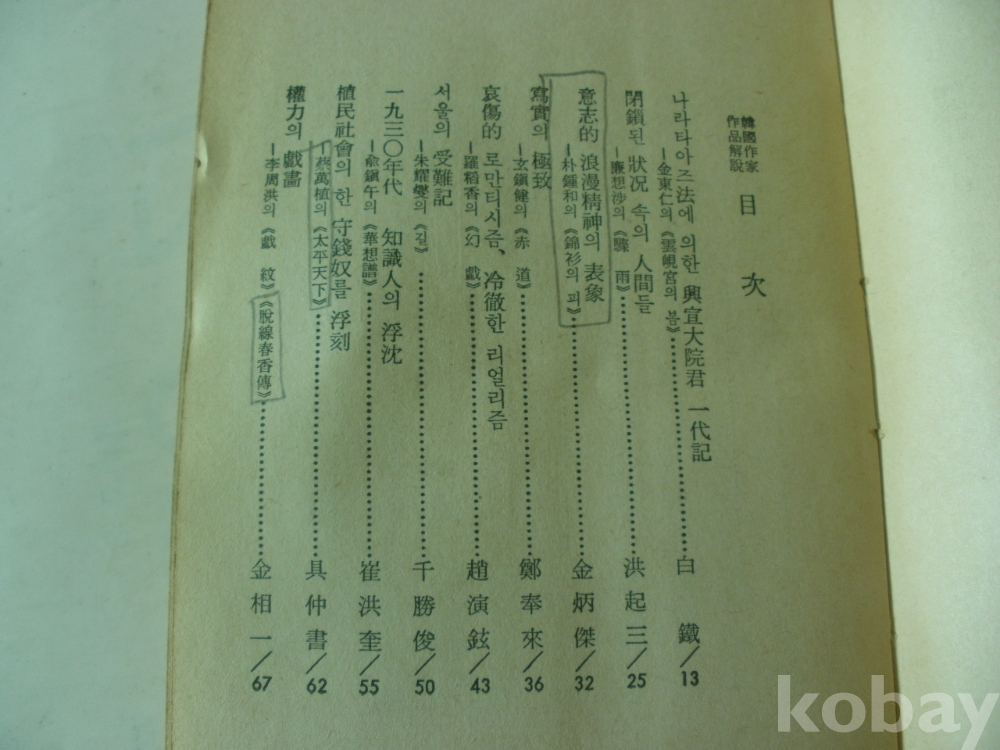 韓國作家
作品解說
目次
나라타아즈法에 의한 興宣大院君 一代記
—金東仁의 《雲峴宮의 봄》 白鐵/13
閉鎖된 狀況 속의 人間들
—廉想涉의 《驟雨》 洪起三/25
意志的 浪漫精神의 表象
—朴鍾和의 《錦衫의 피》 金炳傑/32
寫實의 極致
—玄鎭健의 《赤道》 鄭奉來/36
哀傷的 로만티시즘、冷徹한 리얼리즘
—羅稻香의 《幻戱》 趙演鉉/43
서울의 受難記
—朱耀燮의 《길》 千勝俊/50
一九三〇年代 知識人의 浮沈
—兪鎭午의 《華想譜》 崔洪奎/55
植民社會의 한 守錢奴를 浮刻
—蔡萬植의 《太平天下》 具仲書/62
權力의 戲畵
—李周洪의 《戱紋》《脫線春香傳》 金相一/67
kobay